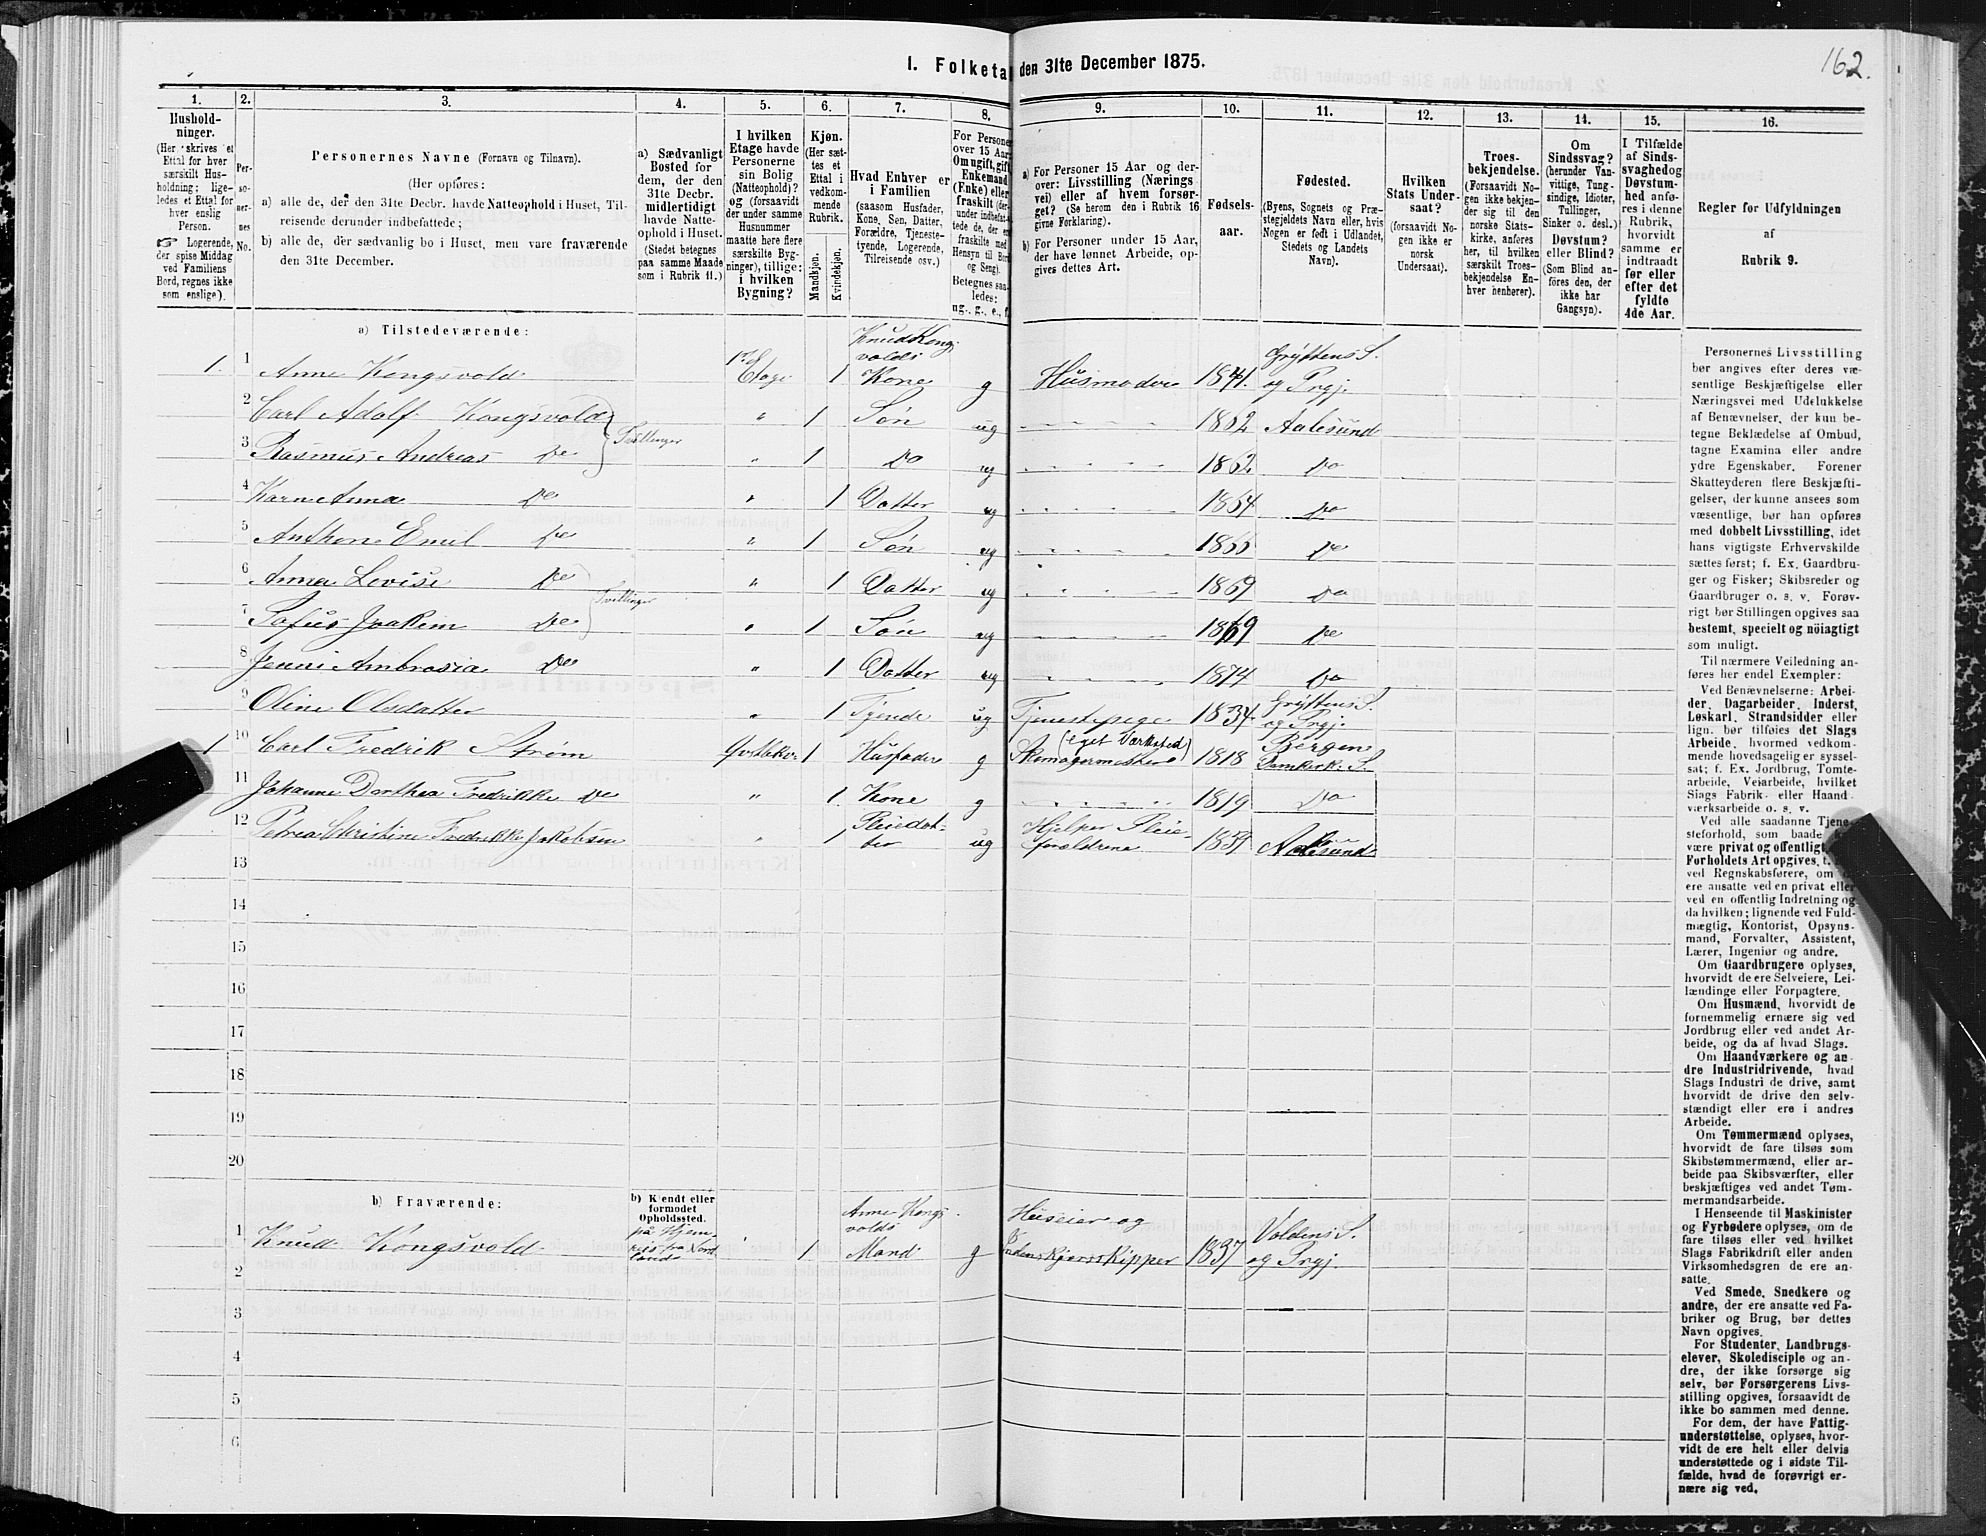 162.
1. Folketæ
den 31te December 1875.
1.
2.
3.
4.
5.
6.
7.
8.
9.
10.
11.
12.
13.
14.
15.
16.
Hushold-
ninger.
(Her skrives et
Ettal for hver
særskilt Hus-
holdning; lige-
ledes et Ettal for
hver enslig
Person.
☞ Logerende,
der spise Middag
ved Familiens
Bord, regnes ikke
som enslige).
Per-
so-
ner-
nes
No.
Personernes Navne (Fornavn og Tilnavn).
(Her opføres:
a) alle de, der den 31te Decbr. havde Natteophold i Huset, Til-
reisende derunder indbefattede;
b) alle de, der sædvanlig bo i Huset, men vare fraværende
den 31te December.
a) Sædvanligt
Bosted for
dem, der den
31te Decbr.
midlertidigt
havde Natte-
ophold i Huset.
(Stedet betegnes
paa samme Maade
som i Rubrik 11.)
I hvilken
Etage havde
Personerne
sin Bolig
(Natteophold)?
og (forsaavidt
der under samme
Husnummer
maatte høre flere
særskilte Byg-
ninger), tillige:
i hvilken
Bygning?
Kjøn.
(Her sæt-
tes et
Ettal i
vedkom-
mende
Rubrik.
Mandkjøn.
Kvindekjøn.
Hvad Enhver er
i Familien
(saasom Husfader,
Kone, Søn, Datter,
Forældre, Tjeneste-
tyende, Logerende,
Tilreisende osv.)
For Persone
over 15 Aar
Om ugift, gift
Enkemand
(Enke) eller
fraskilt (der-
under indbefat-
tede de, der
fraskilte med
Hensyn til Bord
og Seng).
Betegnes saa-
ledes:
ug., g., e., f.
a) For Personer 15 Aar og der-
over: Livsstilling (Nærings
vei) eller af hvem forsør-
get? (Se herom den i Rubrik 16
givne Forklaring).
b) For Personer under 15 Aar,
der have lønnet Arbeide, op-
gives dettes Art.
Fødsels-
aar.
Fødested.
(Byens, Sognets og Præ-
stegjeldets Navn eller, hvis
Nogen er født i Udlandet,
Stedets og Landets
Navn).
Hvilken
Stats Under-
saat?
(forsaavidt No-
gen ikke er
norsk
Undersaat).
Troes-
bekjendelse.
(Forsaavidt No-
gen ikke bekjen-
der sig til den
norske Stats-
kirke, anføres
her, til hvilken
særskilt Troes-
bekjendelse En-
hver henhører).
Om
Sindssvag?
(herunder Van-
vittige, Tung-
sindige, Idioter,
Tullinger,
Sinker o. desl.)
Døvstum?
eller Blind?
(Som Blind an-
føres den, der
ikke har
Gangsyn).
I Tilfælde
af Sinds-
svaghed og
Døvstum-
hed anfø-
res i denne
Rubrik,
hvorvidt
samme er
indtraadt
før eller
efter det
fyldte
4de Aar.
Regler for Udfyldningen
af
Rubrik 9.
a) Tilstedeværende:
1. 1 Anne Kongsvold 1ste Etage 1 Knud Kongsvolds Kone g Husmoder 1841. Gryttens S. og Prgj.
2 Carl Adolf Kongsvold Tvillinger " 1 Søn ug 1862 Aalesund
3 Rasmus Andreas Do " 1 Do ug 1862 Do
4 Karn Anna Do " 1 Datter ug 1864 Do
5 Anthon Emil Do " 1 Søn ug 1866 Do
6 Anna Lovise Do Tvillinger " 1 Datter ug 1869 Do
7 Sofus Joakim Do " 1 Søn ug 1869 Do
8 Jenni Ambrosia Do " 1 Datter ug 1874 Do
9 Oline Olsdatter " 1 Tyende ug Tjenestepige 1834. Gryttens S. og Prgj.
1 10 Carl Fredrik Strøm 1 Husfader g Skomagermester (eget Værksted) 1818 Bergen Domkirk: S.
11 Johanne Dorthea Fredrikke Do " 1. Kone g 1819 Do
12 Petrea Christine Fredrikke Jakobsen " 1 Pleiedatter ug Hjelper Pleieforældrene 1859 Aalesund
13
14
15
16
17
18
19
20
b) Fraværende:
b) Kjendt eller
formodet
Opholdssted.
1 Knud Kongsvold på Hjemreis fra Nordland 1 Anne Kongsvolds Mand g Huseier og Indenskjærsskipper 1837 Voldens S. og Prgj
2
3
4
5
6
Personernes Livsstilling
bør angives efter deres væ-
sentlige Beskjæftigelse eller
Næringsvei med Udelukkelse
af Benævnelser, der kun be-
tegne Beklædelse af Ombud,
tagne Examina eller andre
ydre Egenskaber. Forener
Skatteyderen flere Beskjæfti-
gelser, der kunne ansees som
væsentlige, bør han opføres
med dobbelt Livsstilling, idet
hans vigtigste Erhvervskilde
sættes først; f. Ex. Gaardbru-
ger og Fisker; Skibsreder og
Gaardbruger o. s. v. Forøv-
rigt bør Stillingen opgives saa
bestemt, specielt og nöiagtigt
som muligt.
Til nærmere Veiledning an-
føres her endel Exempler:
Ved Benævnelserne: Arbei-
der, Dagarbeider, Inderst,
Løskarl, Strandsidder eller
lign. bør tilføies det Slags
Arbeide, hvormed vedkom-
mende hovedsagelig er syssel-
sat; f. Ex. Jordbrug, Tomte-
arbeide, Veiarbeide, hvilket
Slags Fabrik- eller Haand-
værksarbeide o. s. v.
Ved alle saadanne Tjene-
steforhold, som baade
være privat og offentligt,
Forholdets Art opgives, t.
ved Regnskabsførere, om
ere ansatte ved en privat eller
ved en offentlig Indretning og
da hvilken; lignende ved Fuld-
mægtig, Kontorist, Opsyns-
mand, Forvalter, Assistent,
Lærer, Ingeniør og andre.
Om Gaardbrugere oplyses,
hvorvidt de ere Selveiere, Lei-
lændinge eller Forpagtere.
Om Husmænd, hvorvidt de
fornemmelig ernære sig ved
Jordbrug eller ved andet Ar-
beide, og da af hvad Slags.
Om Haandværkere og an-
dre Industridrivende, hvad
Slags Industri de drive, samt
hvorvidt de drive den selv-
stændigt eller ere i andres
Arbeide.
Om Tømmermænd oplyses,
hvorvidt de fare tilsøs som
Skibstømmermænd, eller ar-
beide paa Skibsværfter, eller
beskjæftiges ved andet Tøm-
mermandsarbeide.
I Henseende til Maskinister
og Fyrbødere oplyses, om de
fare tilsøs eller ved hvilket
Slags Fabrikdrift eller anden
Virksomhedsgren de ere an-
satte.
Ved Smede, Snedkere og
andre, der ere ansatte ved Fa-
briker og Brug, bør dettes
Navn opgives.
For Studenter, Landbrugs-
elever, Skoledisciple og an-
dre, der ikke forsørge sig
selv, bør Forsørgerens Livs-
stilling opgives, forsaavidt de
ikke bo sammen med denne.
For dem, der have Fattig-
understøttelse, oplyses, hvor-
vidt de ere helt eller delvis
understøttede og i sidste Til-
fælde, hvad de forøvrigt er-
nære sig ved.